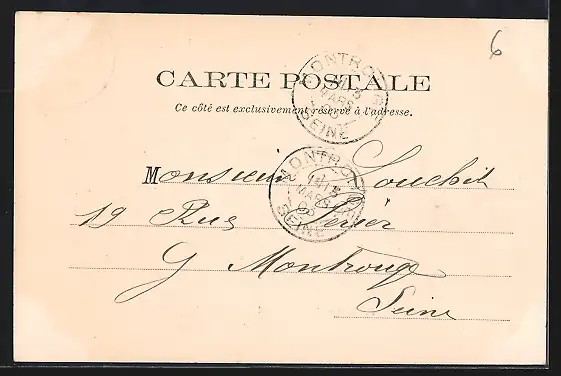 6
CARTE POSTALE
Ce côté est exclusivement réservé à l'adresse.
MONTROUGE
MARS
SEINE
Monsieur Souchet
19 Rue Périer
MONTROUGE
MARS
SEINE
G Montrouge
Seine